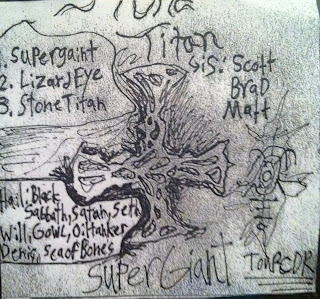 Titan
1. Supergaint
2. LizardEye
3. StoneTitan
Sis: Scott
Brad
Matt
Hail: Black
Sabbath, Satan, Seth
Will, Gowl, Oiltanker
Denis, Sea of Bones
SuperGiant